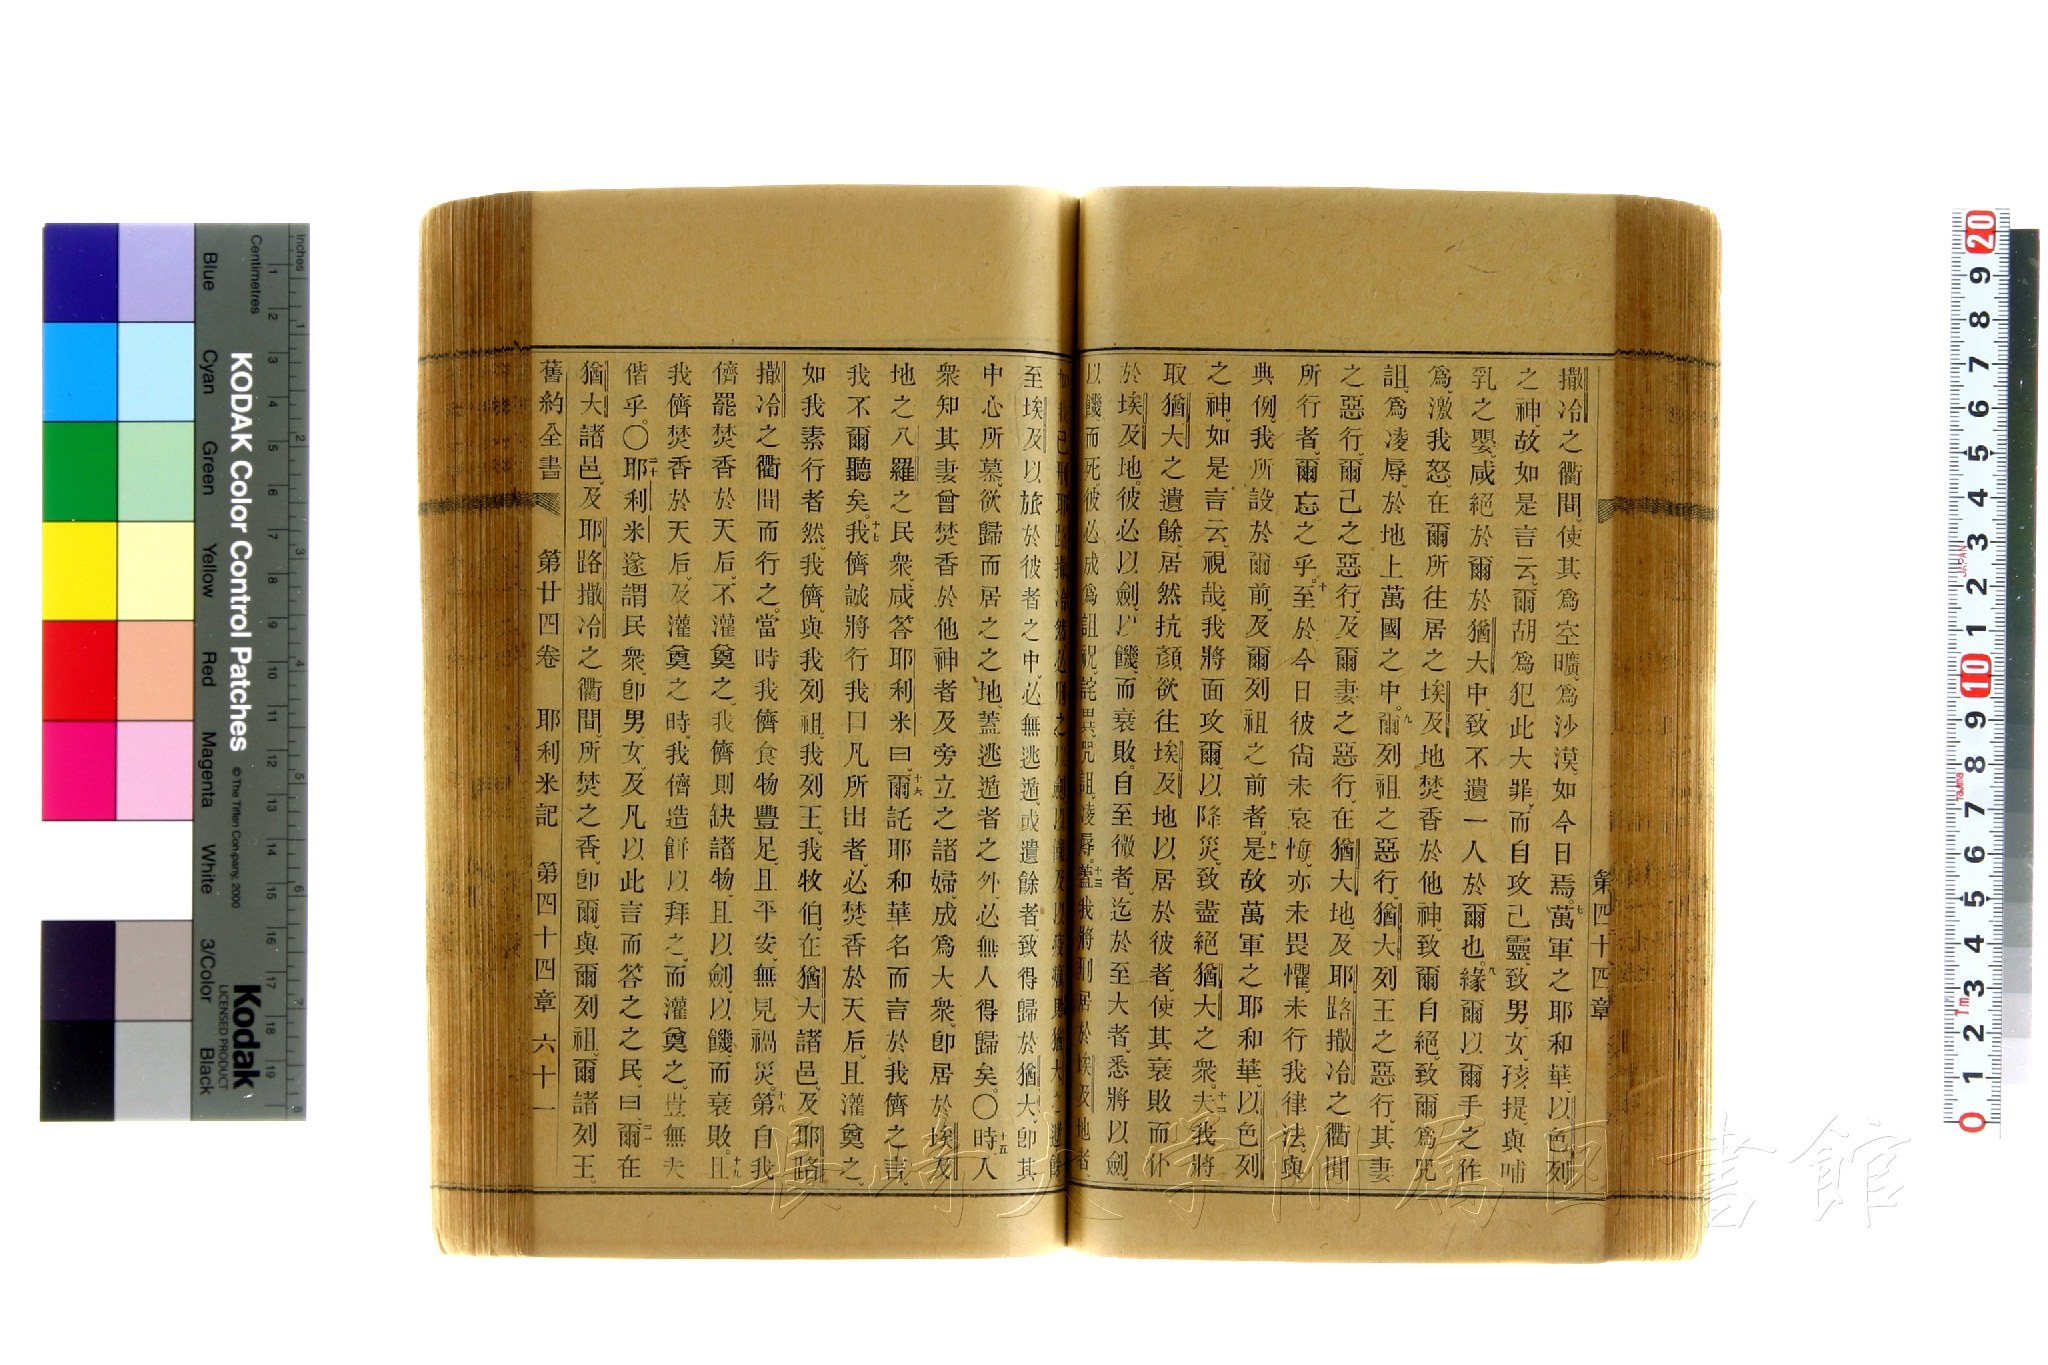 第四十四章
撒冷之衢間、使其爲空曠、爲沙漠、如今日焉。七萬軍之耶和華、以色列
之神、故如是言云、爾胡爲犯此大罪、而自攻己靈、致男、女、孩提、與哺
乳之嬰、咸絕於爾於猶大中、致不遺一人於爾也。八緣爾以爾手之作
爲激我怒、在爾所往居之埃及地焚香於他神、致爾自絕、致爾爲咒
詛、爲凌辱、於地上萬國之中。九爾列祖之惡行、猶大列王之惡行、其妻
之惡行、爾己之惡行、及爾妻之惡行、在猶大地、及耶路撒冷之衢間
所行者、爾忘之乎。十至於今日彼尙未哀悔、亦未畏懼、未行我律法、與
典例、我所設於爾前、及爾列祖之前者。十一是故萬軍之耶和華、以色列
之神、如是言云、視哉、我將面攻爾、以降災、致盡絕猶大之衆。十二夫我將
取猶大之遺餘、居然抗顏欲往埃及地以居於彼者、使其衰敗而仆
於埃及地。彼必以劍、以饑、而衰敗。自至微者、迄於至大者、悉將以劍、
以饑、而死、彼必成爲詛祝、詫異、咒詛、凌辱。十三蓋我將刑居於埃及地者、
至埃及以旅於彼者之中、必無逃遁、或遺餘者、致得歸於猶大、卽其
中心所慕、欲歸而居之之地、蓋逃遁者之外、必無人得歸矣。〇十五時、人
衆知其妻曾焚香於他神者、及旁立之諸婦、成爲大衆、卽居於埃及
地之八羅之民衆、咸答耶利米曰、十六爾託耶和華名而言於我儕之言、
我不爾聽矣。十七我儕誠將行我口凡所出者、必焚香於天后、且灌奠之、
如我素行者然、我儕與我列祖、我列王、我牧伯、在猶大諸邑、及耶路
撒冷之衢間而行之、當時我儕食物豐足、且平安、無見禍災。十八第自我
儕罷焚香於天后、不灌奠之、我儕則缺諸物、且以劍、以饑、而衰敗。十九且
我儕焚香於天后、及灌奠之時、我儕造餅以拜之、而灌奠之、豈無夫
偕乎。〇二十耶利米遂謂民衆、卽男女、及凡以此言而答之之民、曰、二一爾在
猶大諸邑、及耶路撒冷之衢間、所焚之香、卽爾、與爾列祖、爾諸列王、
舊約全書 第廿四卷 耶利米記 第四十四章 六十一
KODAK Color Control Patches
© The Tiffen Company, 2000
Kodak
LICENSED PRODUCT
Inches
Centimetres
Blue Cyan Green Yellow Red Magenta White 3/Color Black
長崎大学附属図書館